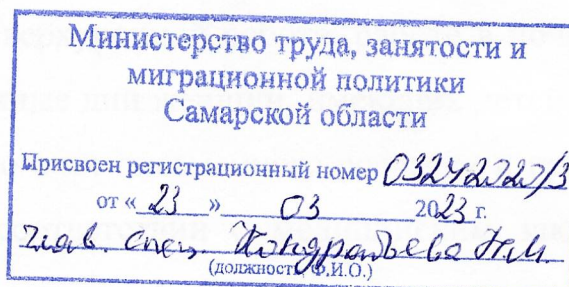 Министерство труда, занятости и
миграционной политики
Самарской области
Присвоен регистрационный номер 03242020/3
от « 23 » 03 2023 г.
глав. спец. Кондратьева Н.М.
(должность, Ф.И.О.)